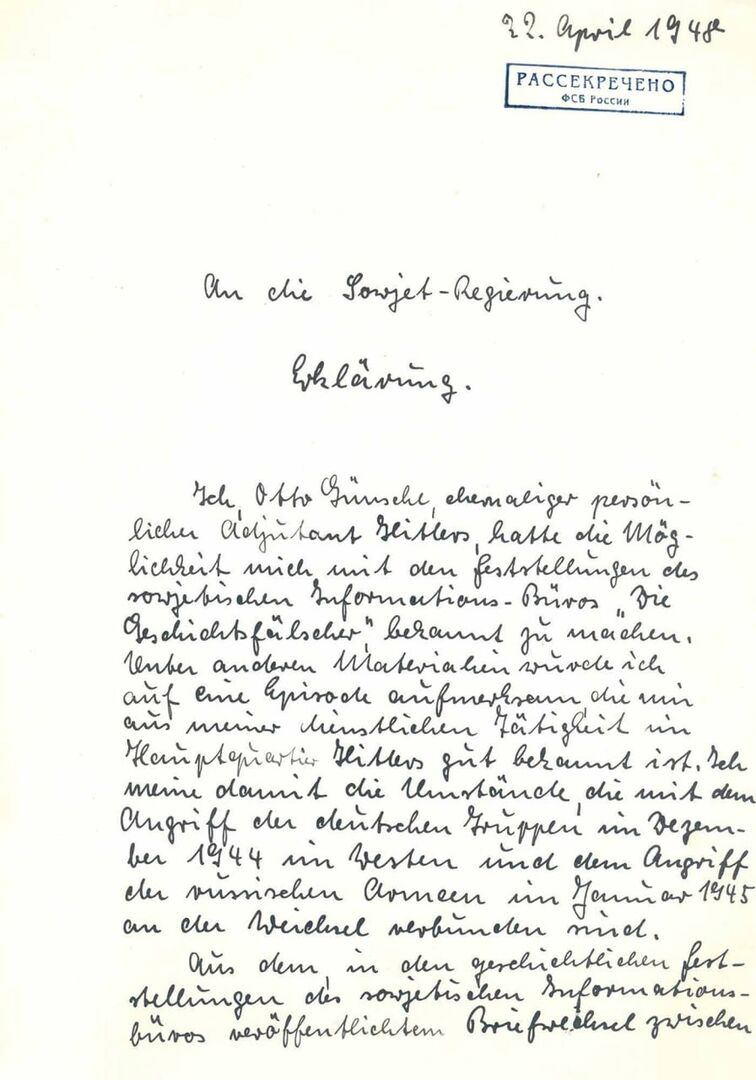 22. April 1948
РАССЕКРЕЧЕНО
ФСБ России
An die Sowjet-Regierung.
Erklärung.
Ich, Otto Günsche, ehemaliger persön-
licher Adjutant Hitlers, hatte die Mög-
lichkeit mich mit den Feststellungen des
sowjetischen Informations-Büros „Die
Geschichtsfälscher“, bekannt zu machen.
Unter anderen Materialien wurde ich
auf eine Episode aufmerksam, die mir
aus meiner dienstlichen Tätigkeit im
Hauptquartier Hitlers gut bekannt ist. Ich
meine damit die Umstände, die mit dem
Angriff der deutschen Truppen im Dezem-
ber 1944 im Westen und dem Angriff
der russischen Armeen im Januar 1945
an der Weichsel verbunden sind.
Aus dem, in den geschichtlichen Fest-
stellungen des sowjetischen Informations-
büros veröffentlichtem Briefwechsel zwischen